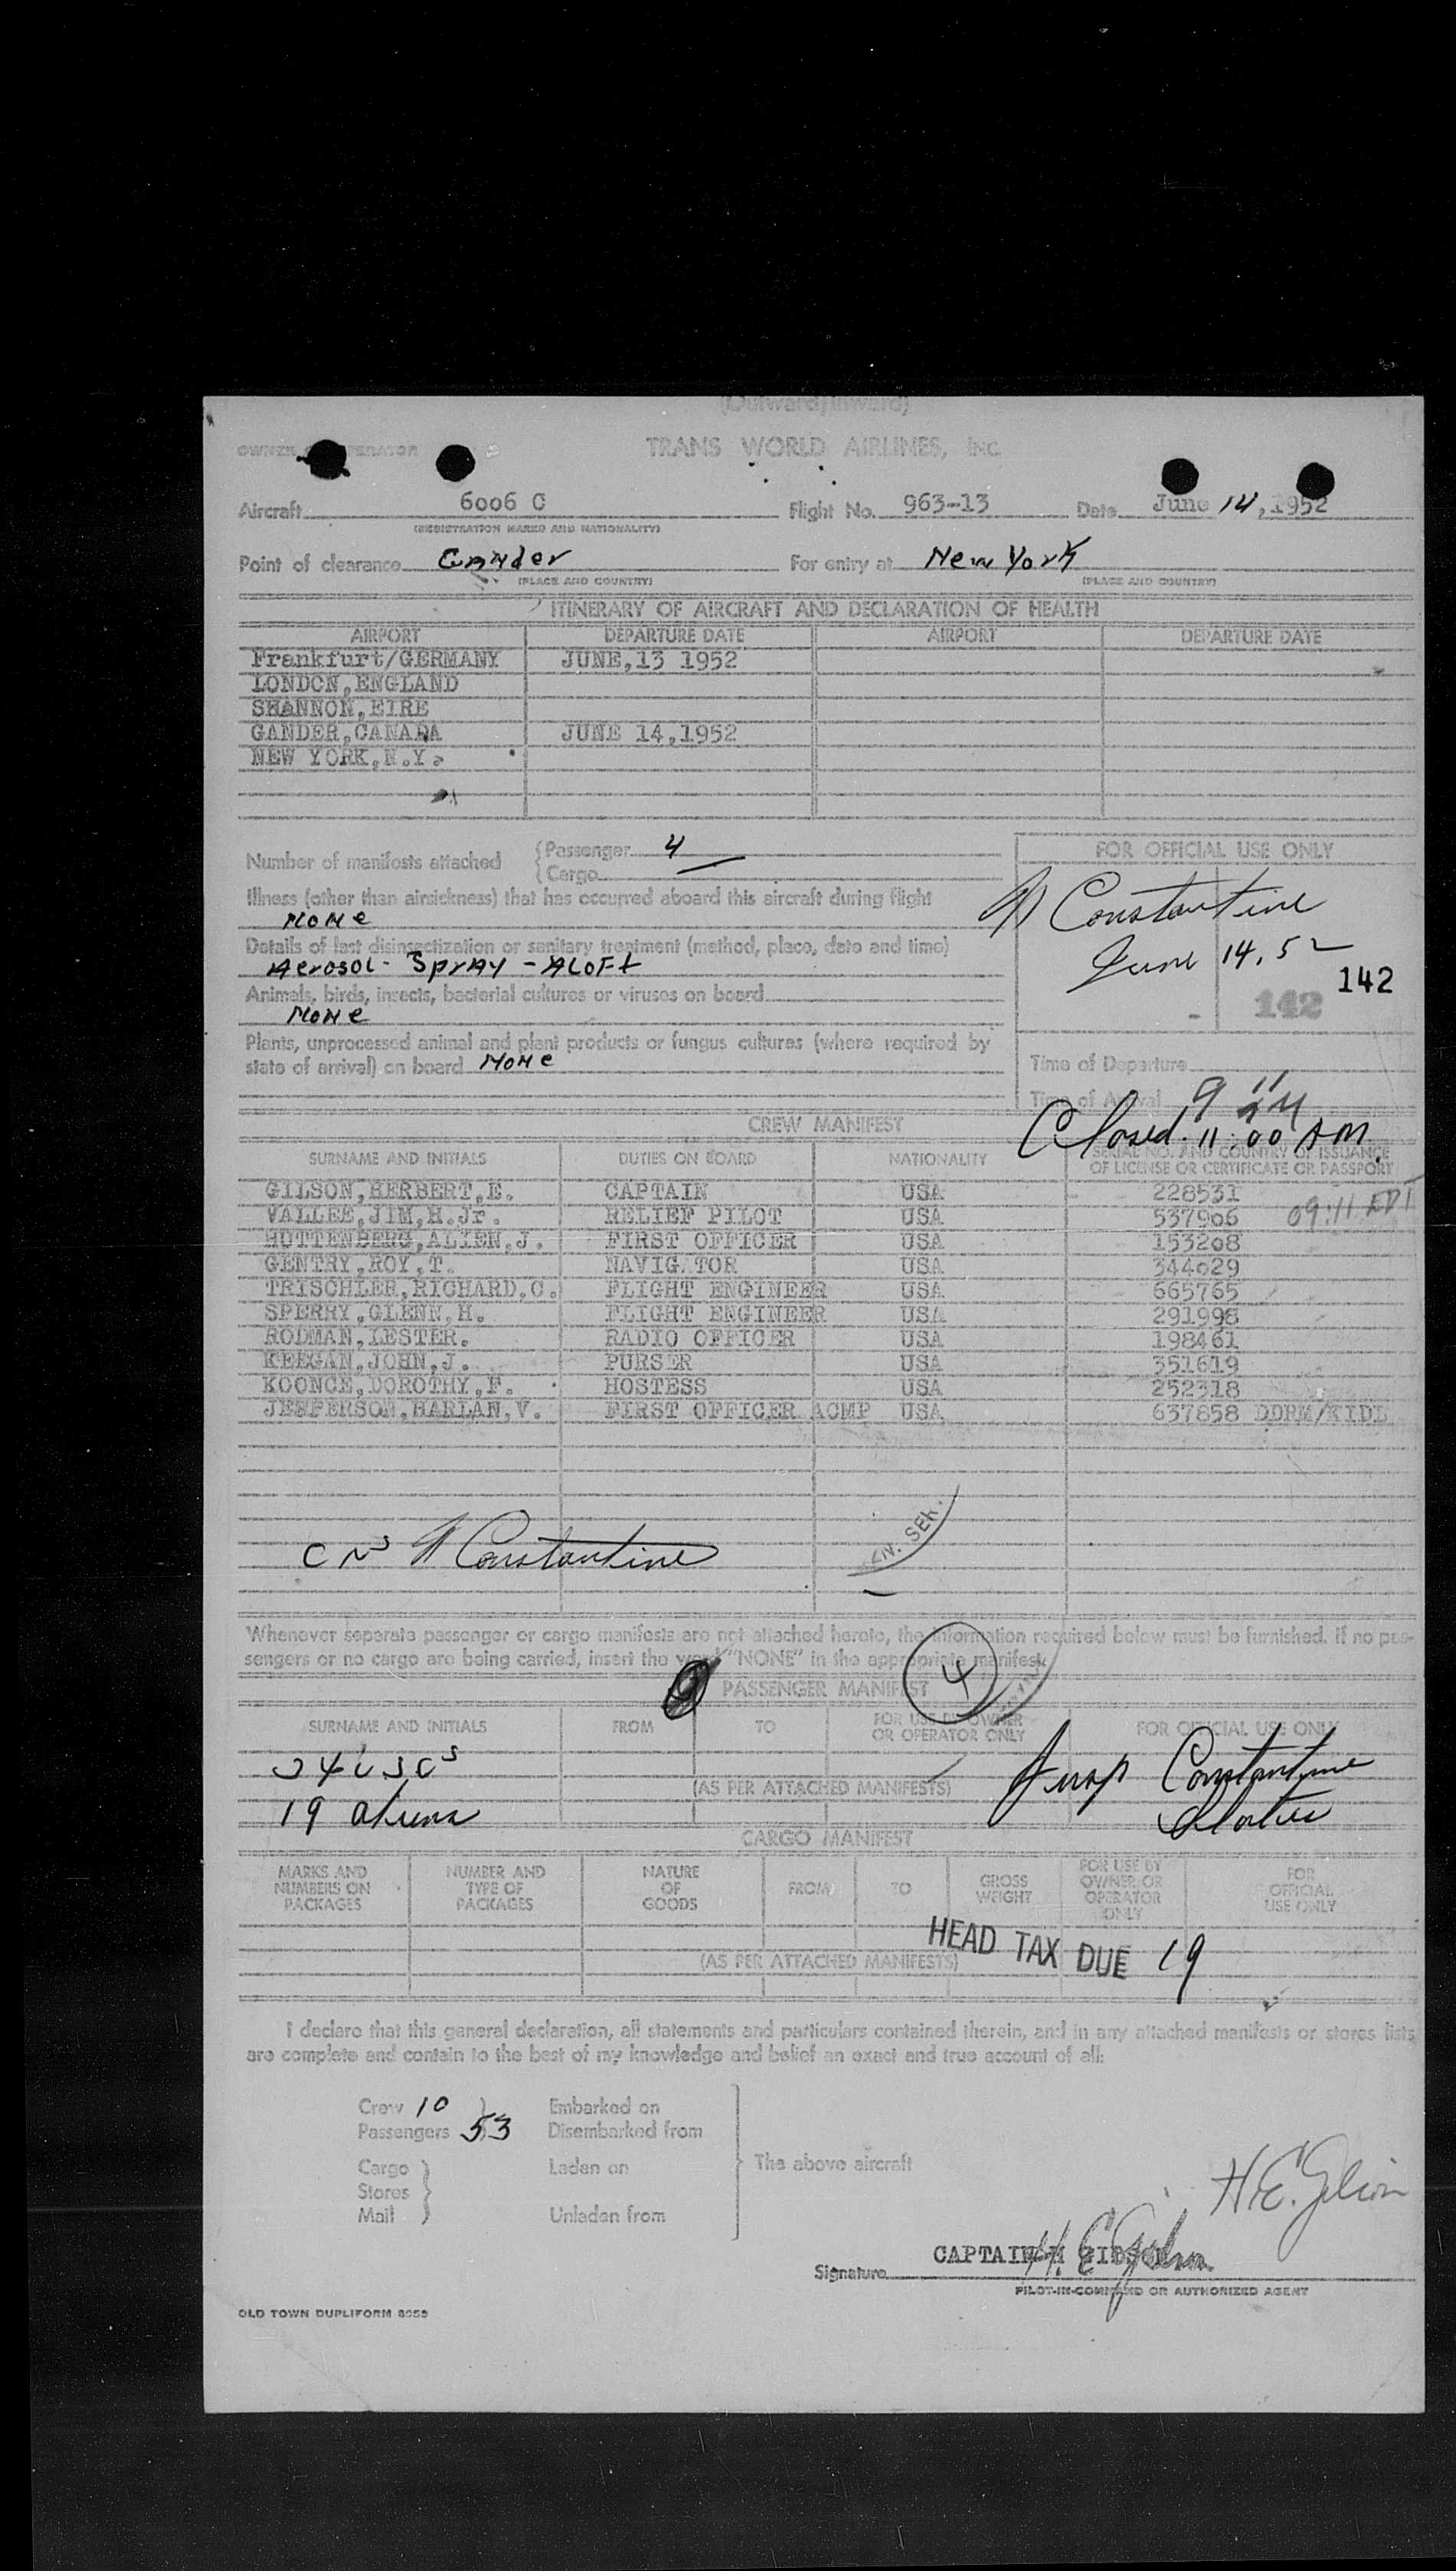 (Outward/Inward)
TRANS WORLD AIRLINES, INC.
Aircraft 6006 C Flight No. 963-13 Date June 14, 1952
(REGISTRATION MARKS AND NATIONALITY)
Point of clearance Gander For entry at New York
(PLACE AND COUNTRY) (PLACE AND COUNTRY)
ITINERARY OF AIRCRAFT AND DECLARATION OF HEALTH
AIRPORT DEPARTURE DATE AIRPORT DEPARTURE DATE
Frankfurt/GERMANY JUNE,13 1952
LONDON,ENGLAND
SHANNON,EIRE
GANDER,CANADA JUNE 14,1952
NEW YORK,N.Y.
Number of manifests attached {Passenger 4
{Cargo —
FOR OFFICIAL USE ONLY
Illness (other than airsickness) that has occurred aboard this aircraft during flight
None
Constantine
June 14, 52
Details of last disinsectization or sanitary treatment (method, place, date and time)
Aerosol - Spray - Aloft
142
142
Animals, birds, insects, bacterial cultures or viruses on board
None
Plants, unprocessed animal and plant products or fungus cultures (where required by
state of arrival) on board None
Time of Departure
Time of Arrival 9 11
Closed 11:00 AM.
CREW MANIFEST
SURNAME AND INITIALS DUTIES ON BOARD NATIONALITY SERIAL NO. AND COUNTRY OF ISSUANCE
OF LICENSE OR CERTIFICATE OR PASSPORT
GILSON,HERBERT,E. CAPTAIN USA 228531
VALLEE,JIM,H.Jr. RELIEF PILOT USA 537906 09:11 EDT
HUTTENBERG,ALLEN,J. FIRST OFFICER USA 153208
GENTRY,ROY,T. NAVIGATOR USA 344029
TRISCHLER,RICHARD,C. FLIGHT ENGINEER USA 665765
SPERRY,GLENN,H. FLIGHT ENGINEER USA 291998
RODMAN,LESTER. RADIO OFFICER USA 198461
KEEGAN,JOHN,J. PURSER USA 351619
KOONCE,DOROTHY,F. HOSTESS USA 252318
JEFFERSON,HARLAN,V. FIRST OFFICER ACMP USA 637858 DDRM/KIDL
Constantine
Whenever separate passenger or cargo manifests are not attached hereto, the information required below must be furnished. If no pas-
sengers or no cargo are being carried, insert the word "NONE" in the appropriate manifest.
4
PASSENGER MANIFEST
SURNAME AND INITIALS FROM TO FOR USE BY OWNER OR OPERATOR ONLY FOR OFFICIAL USE ONLY
34 USCs
(AS PER ATTACHED MANIFESTS)
Insp Constantine
19 aliens
CARGO MANIFEST
MARKS AND NUMBERS ON PACKAGES NUMBER AND TYPE OF PACKAGES NATURE OF GOODS FROM TO GROSS WEIGHT FOR USE BY OWNER OR OPERATOR ONLY FOR OFFICIAL USE ONLY
HEAD TAX DUE 19
(AS PER ATTACHED MANIFESTS)
I declare that this general declaration, all statements and particulars contained therein, and in any attached manifests or stores lists
are complete and contain to the best of my knowledge and belief an exact and true account of all:
Crew 10 } Embarked on
Passengers 53 Disembarked from
Cargo } Laden on The above aircraft
Stores
Mail Unladen from
H.E. Gilson
CAPTAIN H GILSON
H. E Gilson
Signature
PILOT-IN-COMMAND OR AUTHORIZED AGENT
OLD TOWN DUPLIFORM 8059